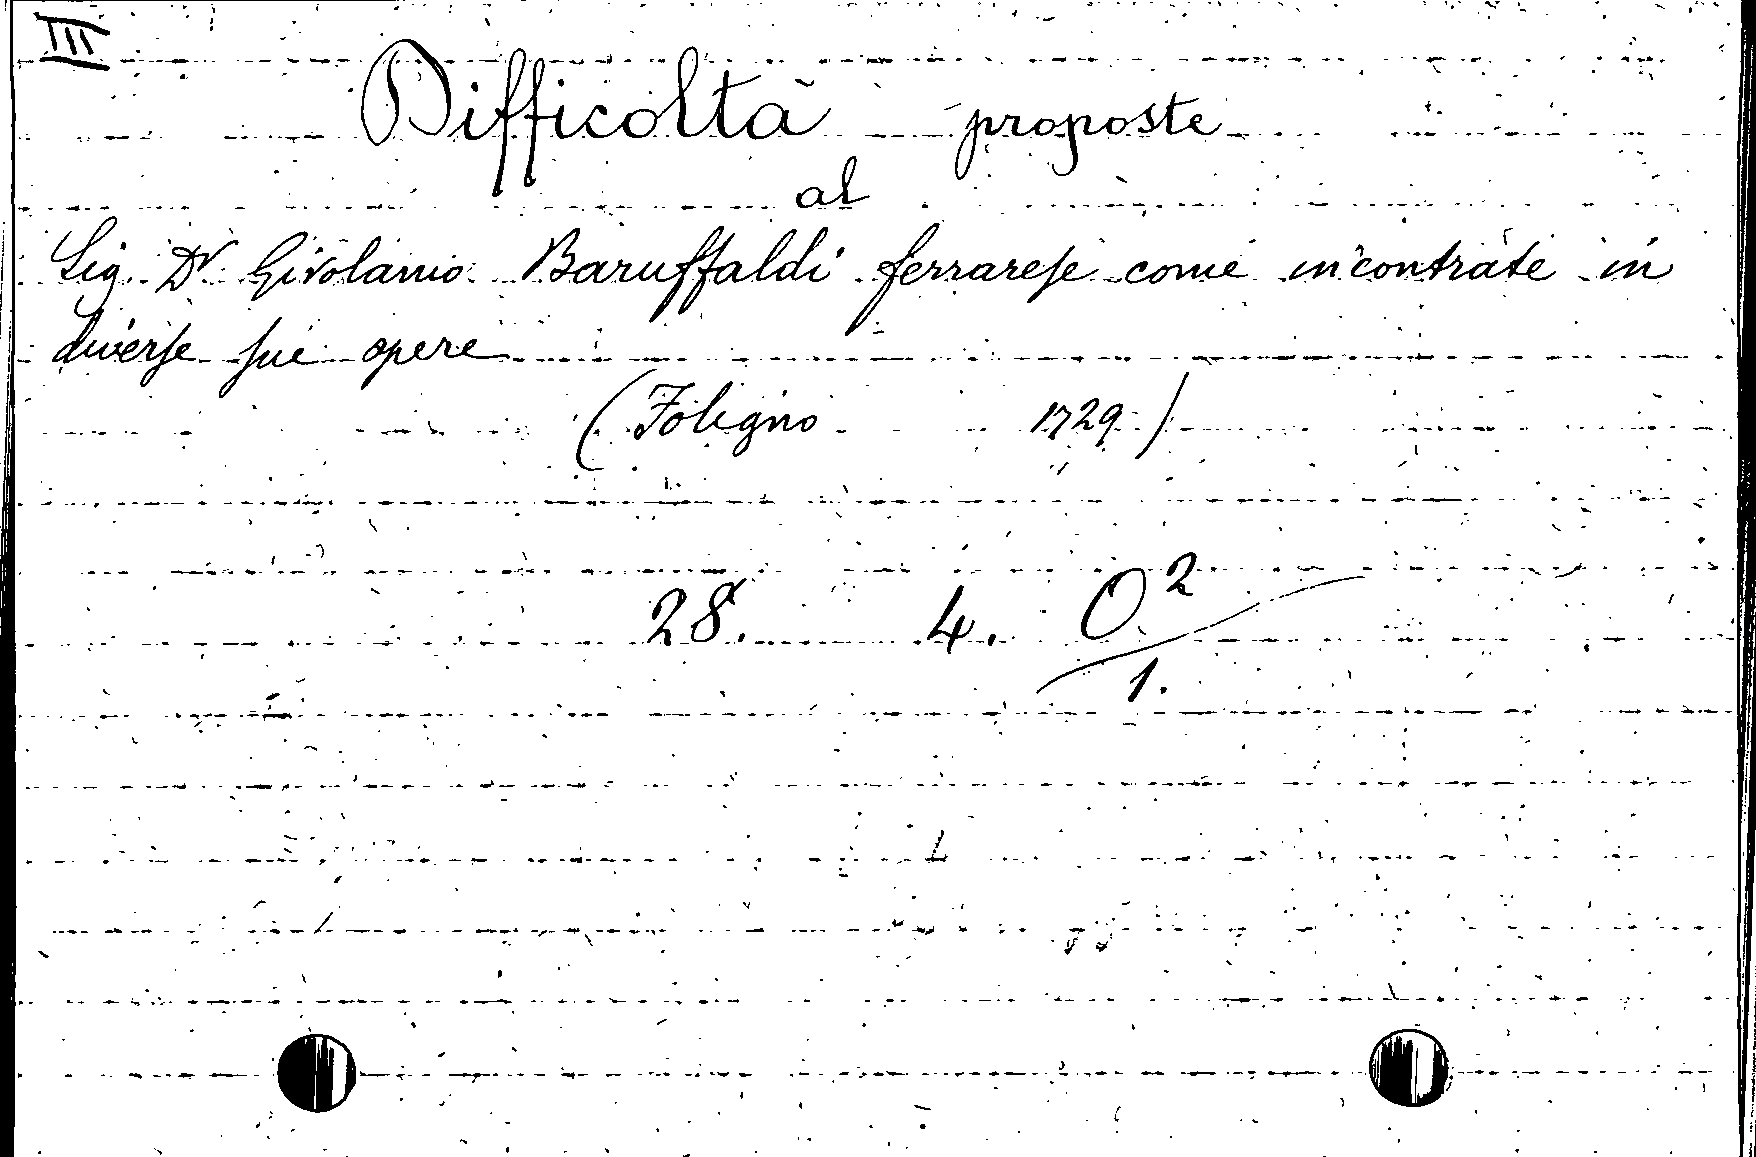 III
Difficoltà proposte
al
Sig. Dr Girolamo Baruffaldi ferrarese come incontrate in
diverse sue opere
(Foligno 1729)
28. 4. O2
1.